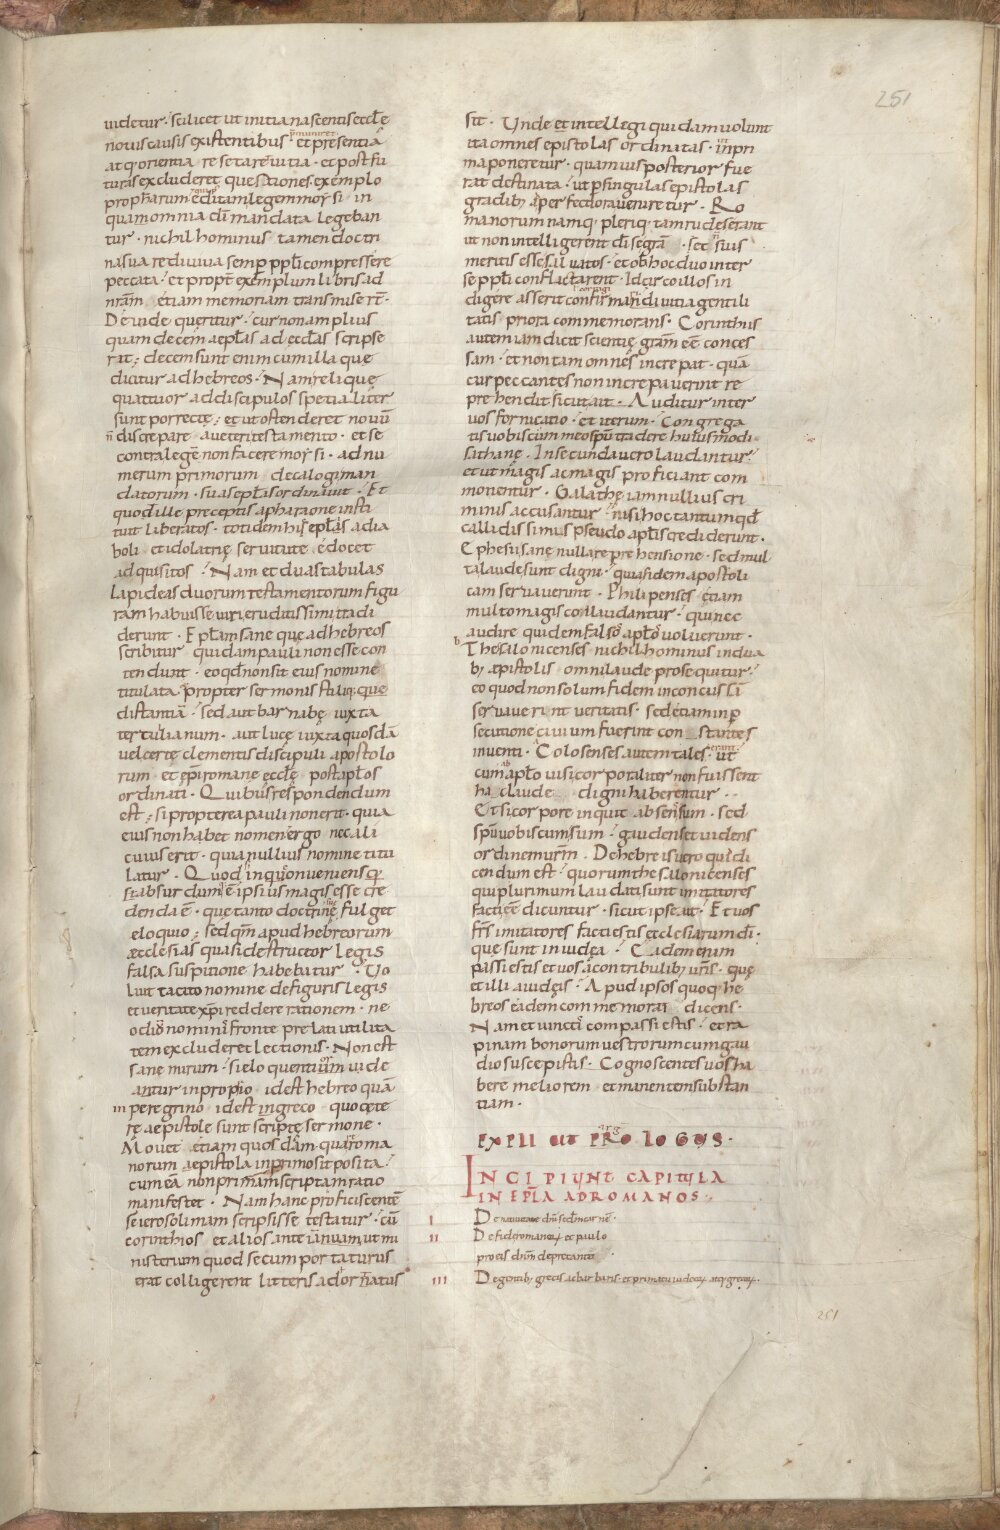 251
uidetur · scilicet ut initia nascentis eccłę
nouis causis existentibus premuniret et presentia
atq; orientia resecaret uitia · et post fu
turas excluderet questiones exemplo
prophetarum · qui post editam legem moysi · in
qua omnia dī mandata legeban
tur · nichil hominus tamen doctri
na sua rediuiua semp pp̄li compressere
peccata · et propt̄ exemplum libris ad
nr̄am etiam memoriam transmiser̄t ·
Deinde queritur · cur non amplius
quam decem aep̄las ad ecclā̄s scripse
rit; decem sunt enim cum illa que
dicitur ad hebreos · Nam relique
quattuor ad discipulos spetialiter
sunt porrectę; et ut ostenderet nouū
n̄ discrepare a ueteri testamento · et se
contra legē non facere moysi · ad nu
merum primorum decalogi man
datorum · suas ep̄las ordinauit · Et
quod ille preceptis a pharaone insti
tuit liberatos · totidem his ep̄lis a dia
boli et idolatrię seruitute edocet
adquisitos · Nam et duas tabulas
lapideas duorum testamentorum figu
ram habuisse uiri eruditissimi tradi
derunt · Ep̄lam sane quę ad hebreos
scribitur quidam pauli non esse con
tendunt · eo qd̄ non sit eius nomine
titulata · propter sermonis stiliq; que
distantiā · sed aut barnabę iuxta
tertulianum · aut lucę iuxta quosdā
uel certe clementis discipuli apostolo
rum · et ep̄i romane ecclę post ap̄los
ordinati · Quibus respondendum
est; si propterea pauli non erit · quia
eius non habet nomen ergo nec ali
cuius erit · quia nullius nomine titu
latur · Quod inquo nueniens qr
Et absurdum ē ipsius magis esse cre
denda ē · que tanto doctrinę suę fulget
eloquio; sed qm̄ apud hebreorum
æcclesias quasi destructor legis
falsa suspitione habebatur · uo
luit tacito nomine de figuris legis
et ueritate xp̄i reddere rationem · ne
odiū nominis fronte prelati utilita
tem excluderet lectionis · Non est
sane mirum · si eloquentior uide
antur in proprio id est hebreo quā
in peregrino id est in greco quo cete
re aepistole sunt scriptę sermone ·
Mouet etiam quosdam · quare roma
norum aepistola in primo sit posita ·
cum eā non primam scriptam ratio
manifestet · Nam hanc proficiscentē
se ierosolimam scripsisse testatur · cū
corinthios et alios ante iam ut mi
nisterium quod secum portaturus
erat colligerent litteris adortatus
sit · Unde et intellegi quidam uolunt
ita omnes epistolas ordinatas · ut in pri
ma poneretur · quamuis posterior fue
rat destinata · ut p singulas epistolas
gradib; ap̄ perfectiora ueniretur · Ro
manorum namq; pleriq; tam rudes erant
ut non intelligerent dī se grā · set suis
meritis esse saluatos · et ob hoc duo inter
se pp̄li conflictarent · Idcirco illos in
digere asserit confirmari diuitia gentili
tatis priora commemorans · Corinthiis
autem iam dicit scientię grām eē conces
sam · et non tam omnes increpat · quā
cur peccantes non increpauerint re
prehendit sicut ait · Auditur inter
uos fornicatio · et iterum · Congrega
tis uobiscum meo spū tradere huiusmodi
sathanę · In secunda uero laudantur
et ut magis ac magis proficiant com
monentur · Galathę iam nullius cri
minis accusantur · nisi hoc tantum qd̄
callidissimus pseudo aplīs crediderunt ·
Ephesii sane nulla reprehensione · sed mul
ta laude sunt digni · quia fidem apostoli
cam seruauerunt · Philipenses etiam
multo magis collaudantur · qui nec
audire quidem falsos aplōs uoluerunt ·
Thesalonicenses nichil hominus in dua
b; æpistolis omni laude prosequitur
eo quod non solum fidem inconcussā
seruauerunt ueritatis · sed etiam in p
secutione ciuium fuerint constantes
inuenti · Colosenses autem tales erant ut
cum ab aplō uisi corporaliter non fuissent
hac laude digni haberentur ·
Et si corpore inquit absens sum · sed
spū uobiscum sum · gaudens et uidens
ordinem urm̄ · De hebreis uero quid di
cendum est · quorum thesalonicenses
qui plurimum laudati sunt imitatores
facti eē dicuntur · sicut ipse ait · Et uos
frs̄ imitatores facti estis ecclesiarum dī ·
que sunt in iudęa · Eadem enim
passi estis et uos a contribulib; ur̄is · quę
et illi a iudęis · Apud ipsos quoq; he
breos eadem commemorat dicens ·
Nam et uinctis compassi estis · et ra
pinam bonorum uestrorum cum gau
dio suscepistis · Cognoscentes uos ha
bere meliorem et manentem substan
tiam ·
EXPLICIT PROLOGUS ·
INCIPIUNT CAPITULA
IN EPL̄A AD ROMANOS ·
I De natiuitate dnī scd̄m carnē ·
II De fide romanorum et paulo
pro eis dnm̄ deprecante ·
III De gentib; grecis ac barbaris · et primatu iudeorum atq; grecorum ·
251